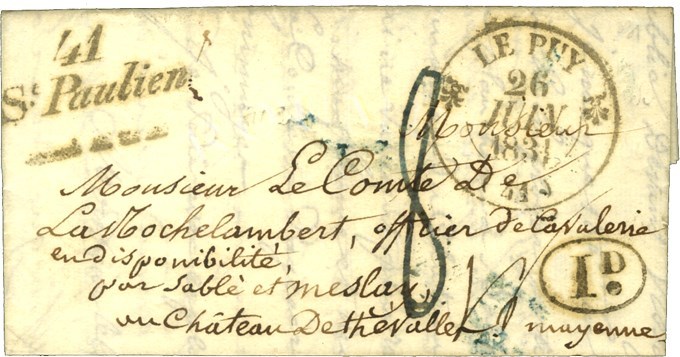 41
St Paulien
LE PUY
26
JUIN
1831
(41)
Monsieur
Monsieur Le Comte De
LaRochelambert, officier de Cavalerie
en disponibilité,
par Sablé et meslay,
au Château De thévalles mayenne
8
1D.